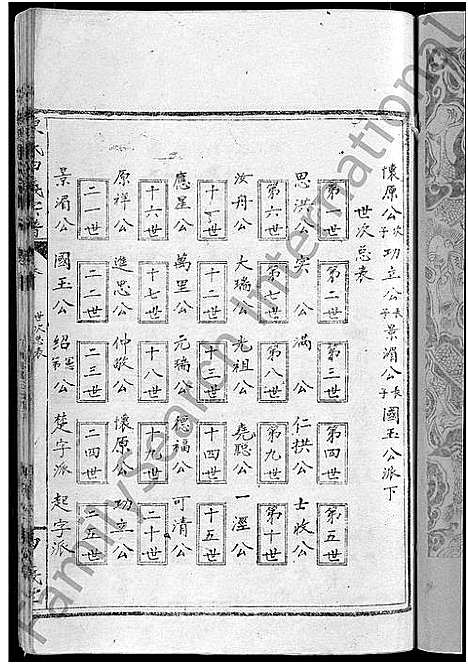 懷原公次子功立公長子景湄公長子國玉公派下
世次总表
第一世 第二世 第三世 第四世 第五世
思洪公 寅公 滿公 仁拱公 士收公
第六世 第七世 第八世 第九世 第十世
汝舟公 大瑞公 光祖公 堯聰公 一湮公
十一世 十二世 十三世 十四世 十五世
應星公 萬里公 元瑞公 德福公 可清公
十六世 十七世 十八世 十九世 二十世
原祥公 進忠公 仲敬公 懷原公 功立公
二一世 二二世 二三世 二四世 二五世
景湄公 國玉公 紹公 楚字派 起字派
世次总表
FamilySearch International